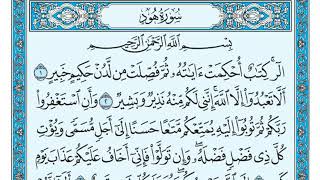 سُورَةُ هُودٍ
بِسْمِ اللَّهِ الرَّحْمَٰنِ الرَّحِيمِ
الٓر ۚ كِتَٰبٌ أُحْكِمَتْ ءَايَٰتُهُۥ ثُمَّ فُصِّلَتْ مِن لَّدُنْ حَكِيمٍ خَبِيرٍ ١
أَلَّا تَعْبُدُوٓا۟ إِلَّا ٱللَّهَ ۚ إِنَّنِى لَكُم مِّنْهُ نَذِيرٌ وَبَشِيرٌ ٢ وَأَنِ ٱسْتَغْفِرُوا۟
رَبَّكُمْ ثُمَّ تُوبُوٓا۟ إِلَيْهِ يُمَتِّعْكُم مَّتَٰعًا حَسَنًا إِلَىٰٓ أَجَلٍ مُّسَمًّى وَيُؤْتِ
كُلَّ ذِى فَضْلٍ فَضْلَهُۥ ۖ وَإِن تَوَلَّوْا۟ فَإِنِّىٓ أَخَافُ عَلَيْكُمْ عَذَابَ يَوْمٍ